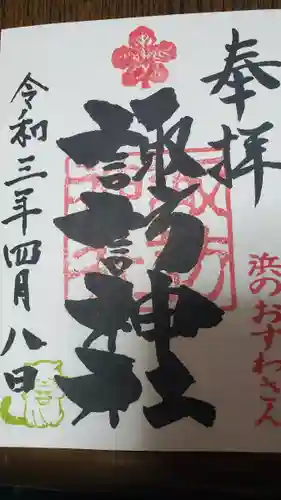 奉拝
浜のおすわさん
諏訪神社
令和三年四月八日